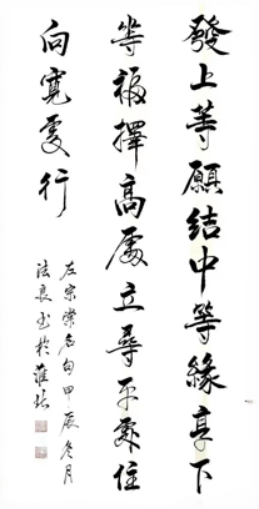 發上等願結中等緣享下
等福擇高處立尋平處住
向寬處行
左宗棠名句甲辰冬月
法良书於淮北